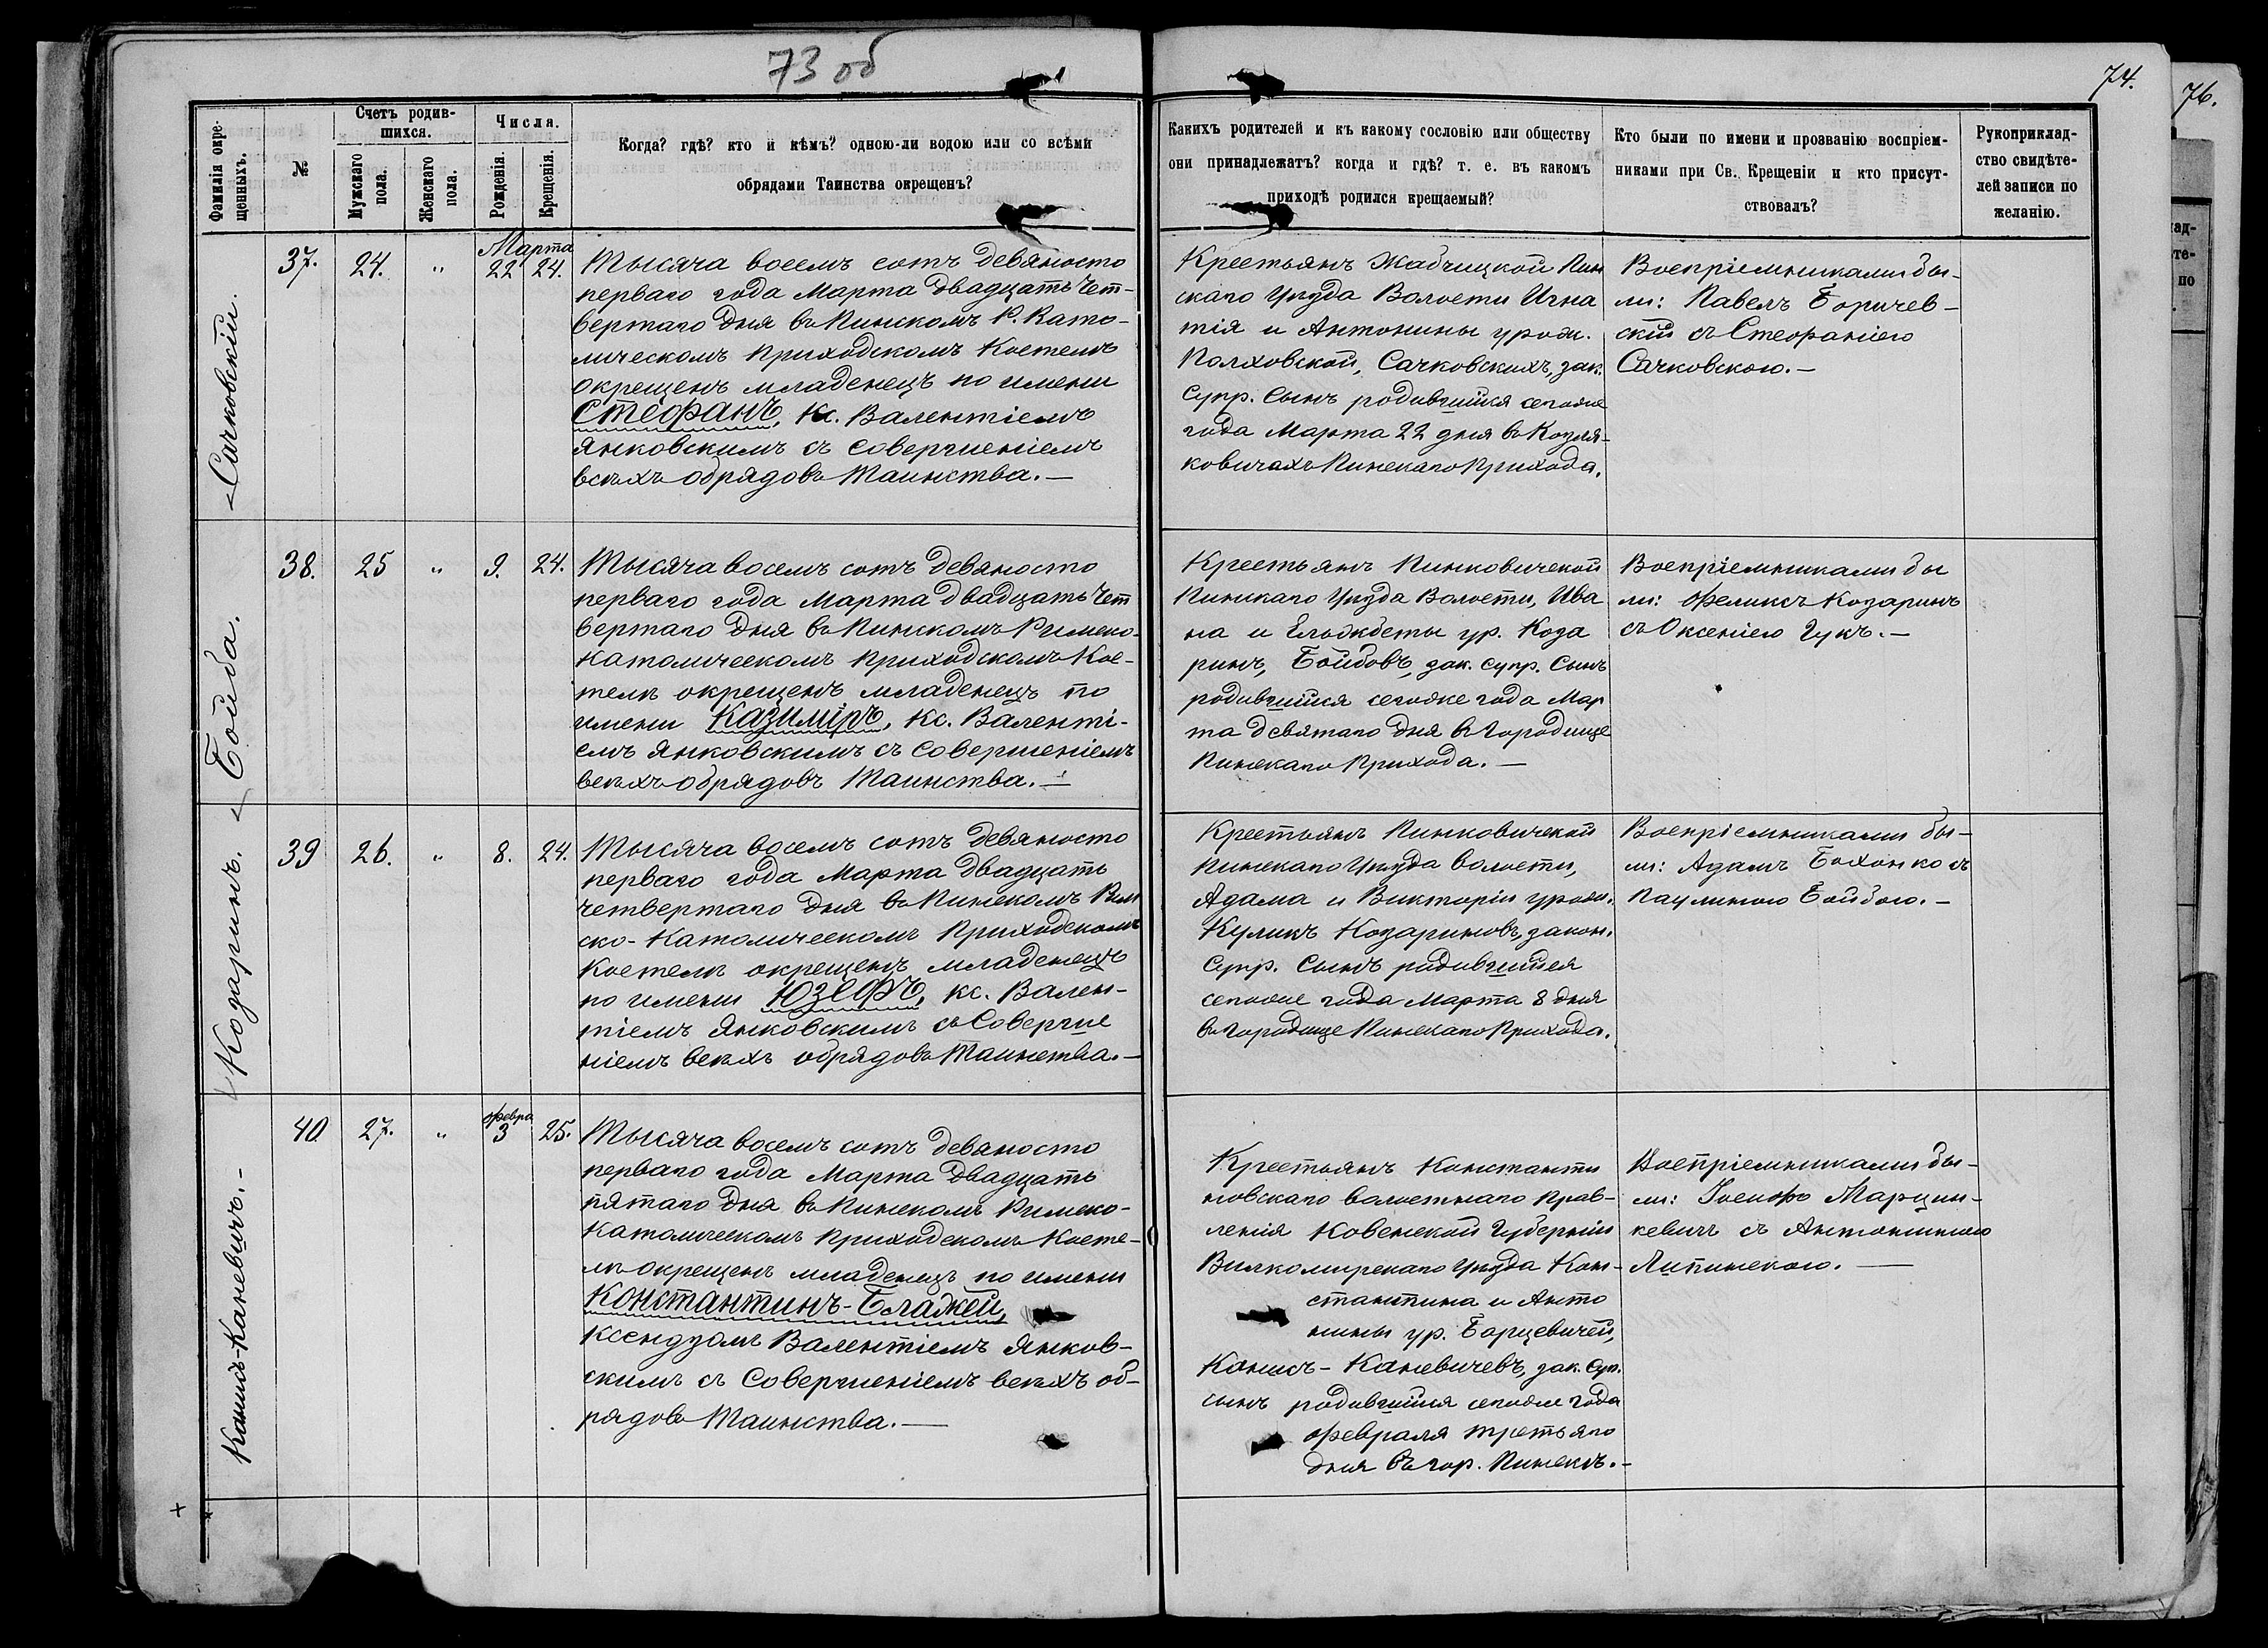 73 об
74.
76.
Фамилія окре-
щенныхъ.
№
Счетъ родив-
шихся.
Мужскаго
пола.
Женскаго
пола.
Числа.
Рожденія.
Крещенія.
Когда? гдѣ? кто и кѣмъ? одною-ли водою или со всѣми
обрядами Таинства окрещенъ?
Какихъ родителей и къ какому сословію или обществу
они принадлежатъ? когда и гдѣ? т. е. въ какомъ
приходѣ родился крещаемый?
Кто были по имени и прозванію воспріем-
никами при Св. Крещеніи и кто присут-
ствовалъ?
Рукоприклад-
ство свидѣте-
лей записи по
желанію.
Сачковскій.
37.
24.
"
Марта
22
24.
Тысяча восемъ сотъ девяносто
перваго года Марта двадцать чет-
вертаго дня въ Пинскомъ Р. Като-
лическомъ приходскомъ Костелѣ
окрещенъ младенецъ по имени
Стефанъ, Кс. Валентіемъ
Янковскимъ съ совершеніемъ
всѣхъ обрядовъ Таинства. —
Крестьянъ Жабчицкой Пин
скаго Уѣзда Волости Игна
тія и Антонины урож.
Полховской, Сачковскихъ, зак.
Супр. Сынъ родившійся сегоже
года Марта 22 дня въ Козля-
ковичахъ Пинскаго Прихода.
Воспріемниками бы-
ли: Павелъ Боричев-
скій съ Стефаніею
Сачковскою. —
Бойба.
38.
25
"
9.
24.
Тысяча восемъ сотъ девяносто
перваго года Марта двадцать чет
вертаго дня въ Пинскомъ Римско-
католическомъ приходскомъ Кос-
телѣ окрещенъ младенецъ по
имени Казиміръ, Кс. Валенті-
емъ Янковскимъ съ совершеніемъ
всѣхъ обрядовъ Таинства. —
Крестьянъ Пинковичской
Пинскаго Уѣзда Волости, Ива
на и Ельжбеты ур. Коза
ринъ, Бойбовъ, зак. супр. Сынъ
родившійся сегоже года Мар
та девятаго дня въ Городище
Пинскаго Прихода. —
Воспріемниками бы
ли: Феликсъ Козаринъ
съ Оксеніею Гукъ. —
Козаринъ.
39
26.
"
8.
24.
Тысяча восемъ сотъ девяносто
перваго года Марта двадцать
четвертаго дня въ Пинскомъ Рим
ско-Католическомъ Приходскомъ
Костелѣ окрещенъ младенецъ
по имени Юзефъ, кс. Вален-
тіемъ Янковскимъ съ Соверше
ніемъ всѣхъ обрядовъ Таинства. —
Крестьянъ Пинковичской
Пинскаго Уѣзда волости,
Адама и Викторіи урож.
Куликъ Козариновъ, закон.
Супр. Сынъ родившійся
сегоже года Марта 8 дня
въ Городище Пинскаго Прихода.
Воспріемниками бы-
ли: Адамъ Бохонко съ
Паулиною Бойбою. —
Канисъ-Каневичъ. —
40
27.
"
Февра
3
25.
Тысяча восемъ сотъ девяносто
перваго года Марта двадцать
пятаго дня въ Пинскомъ Римско-
Католическомъ Приходскомъ Косте-
лѣ окрещенъ младенецъ по имени
Константинъ-Блажей,
Ксендзомъ Валентіемъ Янков-
скимъ съ Совершеніемъ всѣхъ об-
рядовъ Таинства. —
Крестьянъ Константи
новскаго волостнаго Прав-
ленія Ковенской Губерніи
Вилкомирскаго Уѣзда Кон-
стантина и Анто
нины ур. Борцевичей,
Канисъ-Каневичевъ, зак. Суп.
сынъ родившійся сегоже года
Февраля третьяго
дня въ гор. Пинскѣ. —
Воспріемниками бы-
ли: Іосифъ Марцин-
кевичъ съ Антониною
Липинскою. —